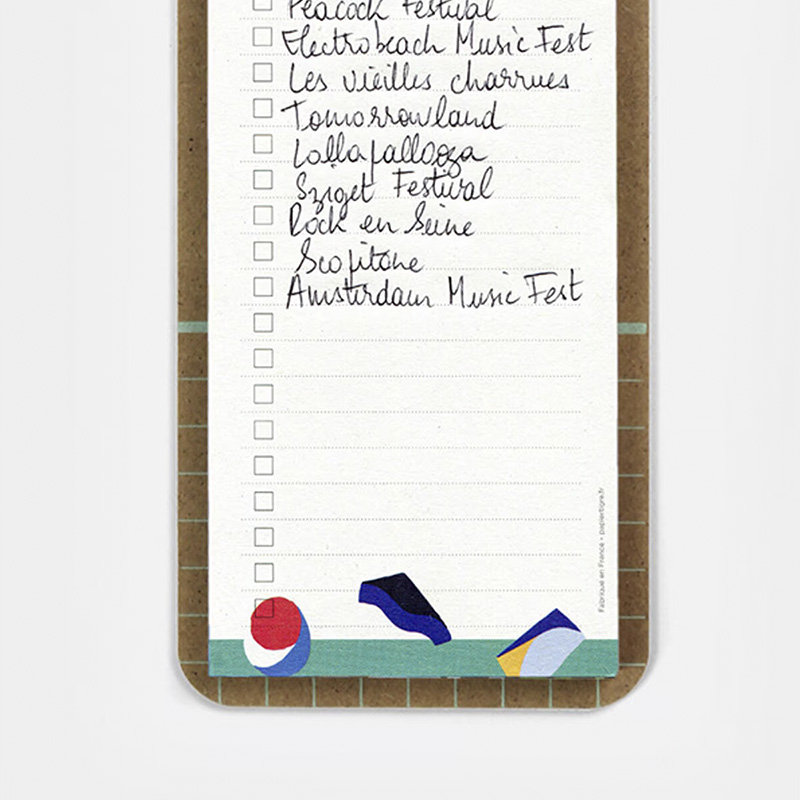 Peacock Festival
Electrobeach Music Fest
Les vieilles charrues
Tomorrowland
Lollapallooza
Sziget Festival
Rock en Seine
Scopitone
Amsterdam Music Fest
Fabriqué en France • papiertigre.fr